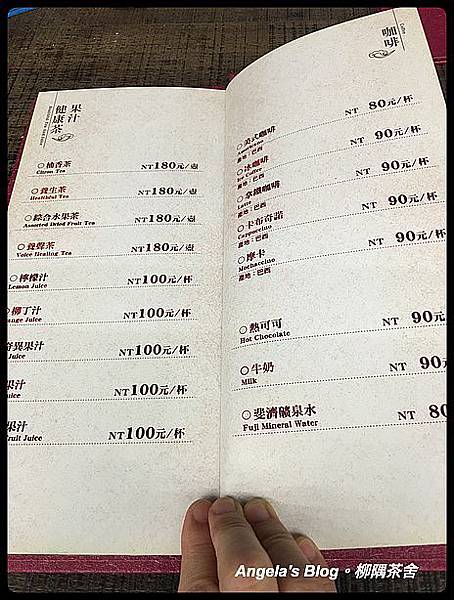 果汁
健康茶
○柚香茶 NT180元/壺
Citron Tea
○養生茶 NT180元/壺
Healthful Tea
○綜合水果茶 NT180元/壺
Assorted Dried Fruit Tea
○養聲茶 NT180元/壺
Voice Healing Tea
○檸檬汁 NT100元/杯
Lemon Juice
柳丁汁 NT100元/杯
ange Juice
奇異果汁 NT100元/杯
Juice
果汁 NT100元/杯
Juice
果汁 NT100元/杯
Fruit Juice
咖啡
Coffee
○美式咖啡 NT 80元/杯
Americano
產地：巴西
○冰咖啡 NT 90元/杯
Ice Coffee
產地：巴西
○拿鐵咖啡 NT 90元/杯
Latte
產地：巴西
○卡布奇諾 NT 90元/杯
Cappuccino
產地：巴西
○摩卡 NT 90元/杯
Mochaccino
產地：巴西
○熱可可 NT 90元
Hot Chocolate
○牛奶 NT 90元
Milk
○斐濟礦泉水 NT 80
Fuji Mineral Water
Angela's Blog。柳隅茶舍